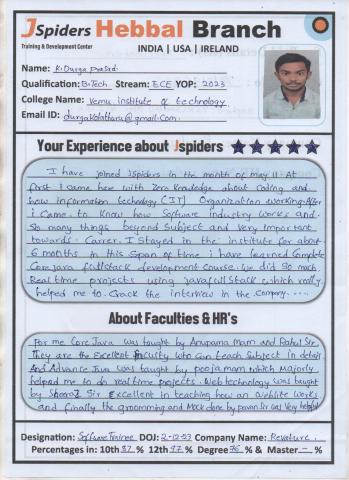 JSpiders Hebbal Branch
Training & Development Center
INDIA | USA | IRELAND
Name: K. Durga prasad.
Qualification: B.Tech Stream: ECE YOP: 2023
College Name: Vemu institute of technology
Email ID: durgakolathuru@gmail.com
Your Experience about Jspiders
I have joined Jspiders in the month of may 11. At
first I came here with Zero Knowledge about Coding and
how information technology (IT) Organization working. After
i Came to Know how Software industry works and
So many things beyond Subject and Very important
towards Carrer. I Stayed in the institute for about
6 months in this Span of time i have learned Complete
Core java fullstack development course. We did So much
Real time projects using java full stack which really
helped me to Crack the interview in the Company....
About Faculties & HR's
For me Core Java was taught by Anupama Mam and Rahul Sir
They are the Excellent faculty who can teach Subject in detail
And Advance Java was taught by pooja mam which Majorly
helped me to do real time projects. Web technology was taught
by Sir Excellent in teaching how an website works
and finally the groomming and Mock done by pavan Sir was Very helpful
Designation: Software Trainee DOJ: 2-12-23 Company Name: Revature.
Percentages in: 10th 87 % 12th 97 % Degree 76 % & Master - %